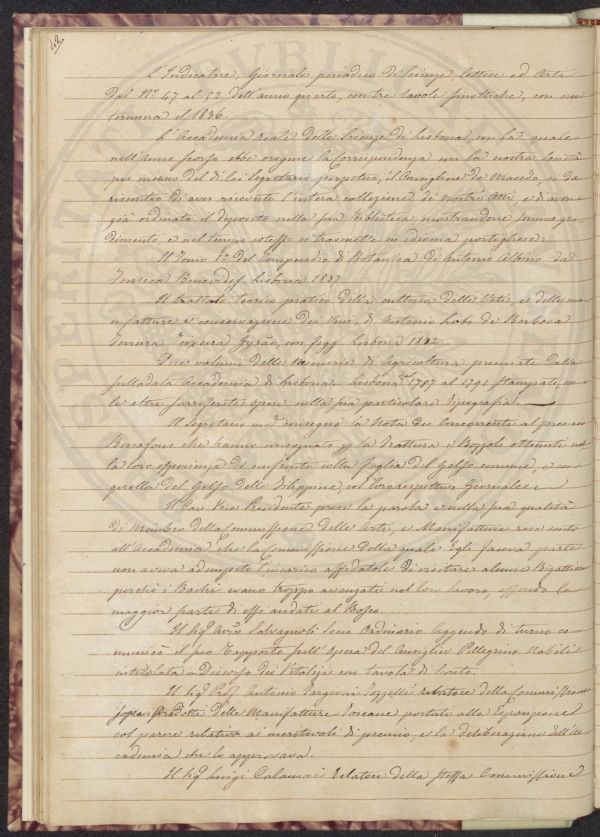 42.
L'Indicatore, Giornale periodico di Scienze, lettere ed Arti
Dal Nº 47 al 52 dell'anno quarto, con tre tavole con cui
termina il 1836.
L'Accademia reale delle Scienze di Lisbona, con la quale
nell'anno scorso ebbe origine la Corrispondenza con la nostra Società
per mezzo del di lei Segretario perpetuo, il Consigliere de Macedo, ci dà
riscontro di aver ricevuto l'intera collezione de' nostri Atti, e d'averne
già ordinato il deposito nella sua Biblioteca mostrandone sommo gra-
dimento, e nel tempo istesso ci trasmette in idioma portoghese:
Il Tomo 1º del Compendio di Botanica di Antonio Albino da
Fonseca Benevides. Lisbona 1837.
Il trattato teorico pratico della cultura delle Viti, e della ma-
nifattura e conservazione dei Vini, di Antonio Lobo de Barbosa
Ferreira Teixeira Gyrão, con figg. Lisbona 1822.
Due volumi delle memorie di Agricoltura premiate dalla
sullodata Accademia di Lisbona. Lisbona 1787 al 1791 stampate, co-
me le altre surriferite opere nella sua particolare Tipografia.
Il Segretario consegnò la Nota dei Concorrenti al premio
Bonafous che hanno consegnato la Trattura i Bozzoli ottenuti nel-
la loro esperienza di confronto colla foglia del Gelso comune, e con
quella del Gelso delle Filippine, col loro respettivo Giornale.
Il Cav. Vice Presidente prese la parola e nella sua qualità
di Membro della Commissione delle Arti, e Manifatture rese conto
all'Accademia che la Commissione della quale Egli faceva parte
non aveva adempito l'incarico affidatole di visitare alcune Bigattiere
perchè i Bachi erano troppo avanzati nel loro lavoro, essendo la
maggior parte di essi andati al Bosco.
Il Sigº Avvº Salvagnoli Socio Ordinario leggendo di turno co-
municò il suo Rapporto sull'Opera del Consiglier Pellegrino Nobili
intitolata = Discorso dei con tavola di conto.
Il Sigº Profº Antonio Targioni Tozzetti relatore della Commissione
sopra i Prodotti delle Manifatture Toscane portati alla Esposizione
col parere relativo ai meritevoli di premio, e la deliberazione dell'Ac-
cademia che lo approvava.
Il Sigº Luigi Calamai Relatore della stessa Commissione